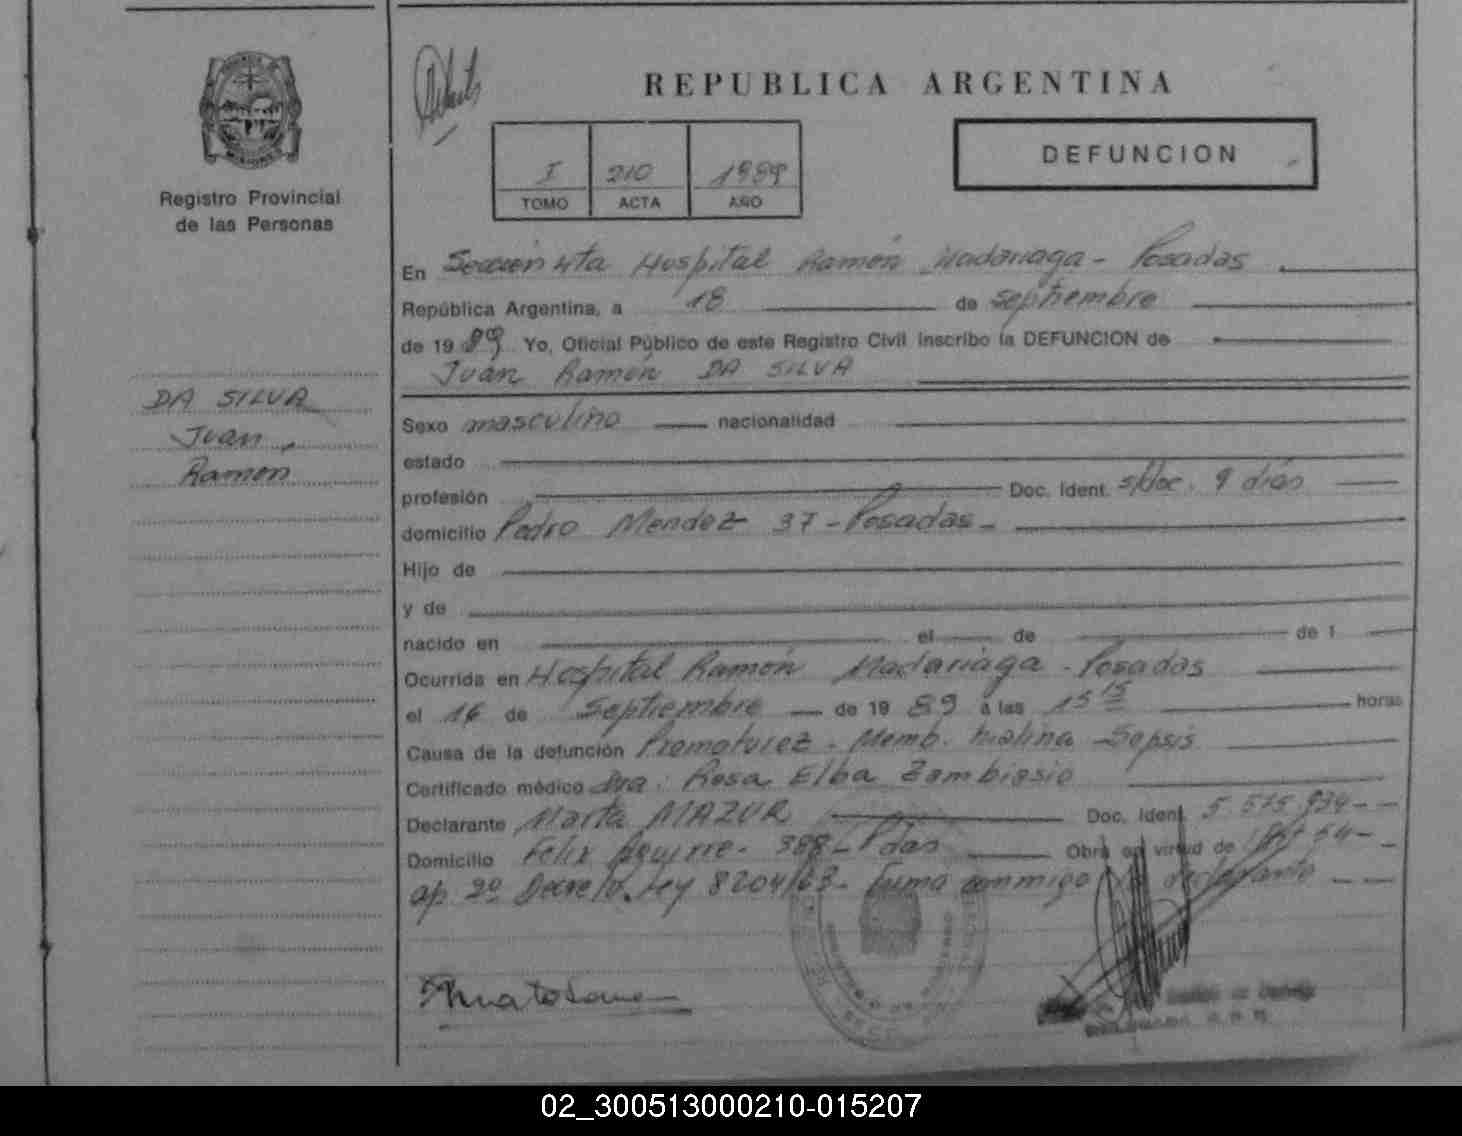 REPUBLICA ARGENTINA
I 210 1989
TOMO ACTA AÑO
DEFUNCION
Registro Provincial
de las Personas
DA SILVA
Juan
Ramón
En Sección 4ta Hospital Ramón Madariaga - Posadas
República Argentina, a 18 de septiembre
de 1989 Yo, Oficial Público de este Registro Civil inscribo la DEFUNCION de
Juan Ramón DA SILVA
Sexo masculino nacionalidad
estado
profesión Doc. Ident. s/Doc. 9 días
domicilio Pedro Mendez 37 - Posadas -
Hijo de
y de
nacido en el de de 1
Ocurrida en Hospital Ramón Madariaga - Posadas
el 16 de Septiembre de 1989 a las 15 15 horas
Causa de la defunción Prematurez - Memb. hialina - Sepsis
Certificado médico Dra. Rosa Elba Zambiasio
Declarante Marta MAZUR Doc. Ident. 5.575.934
Domicilio Félix Aguirre - 388 - Pdas Obra en virtud de Art 54 -
ap 2º Decreto Ley 8204/63 - Firma conmigo declarante
02_300513000210-015207